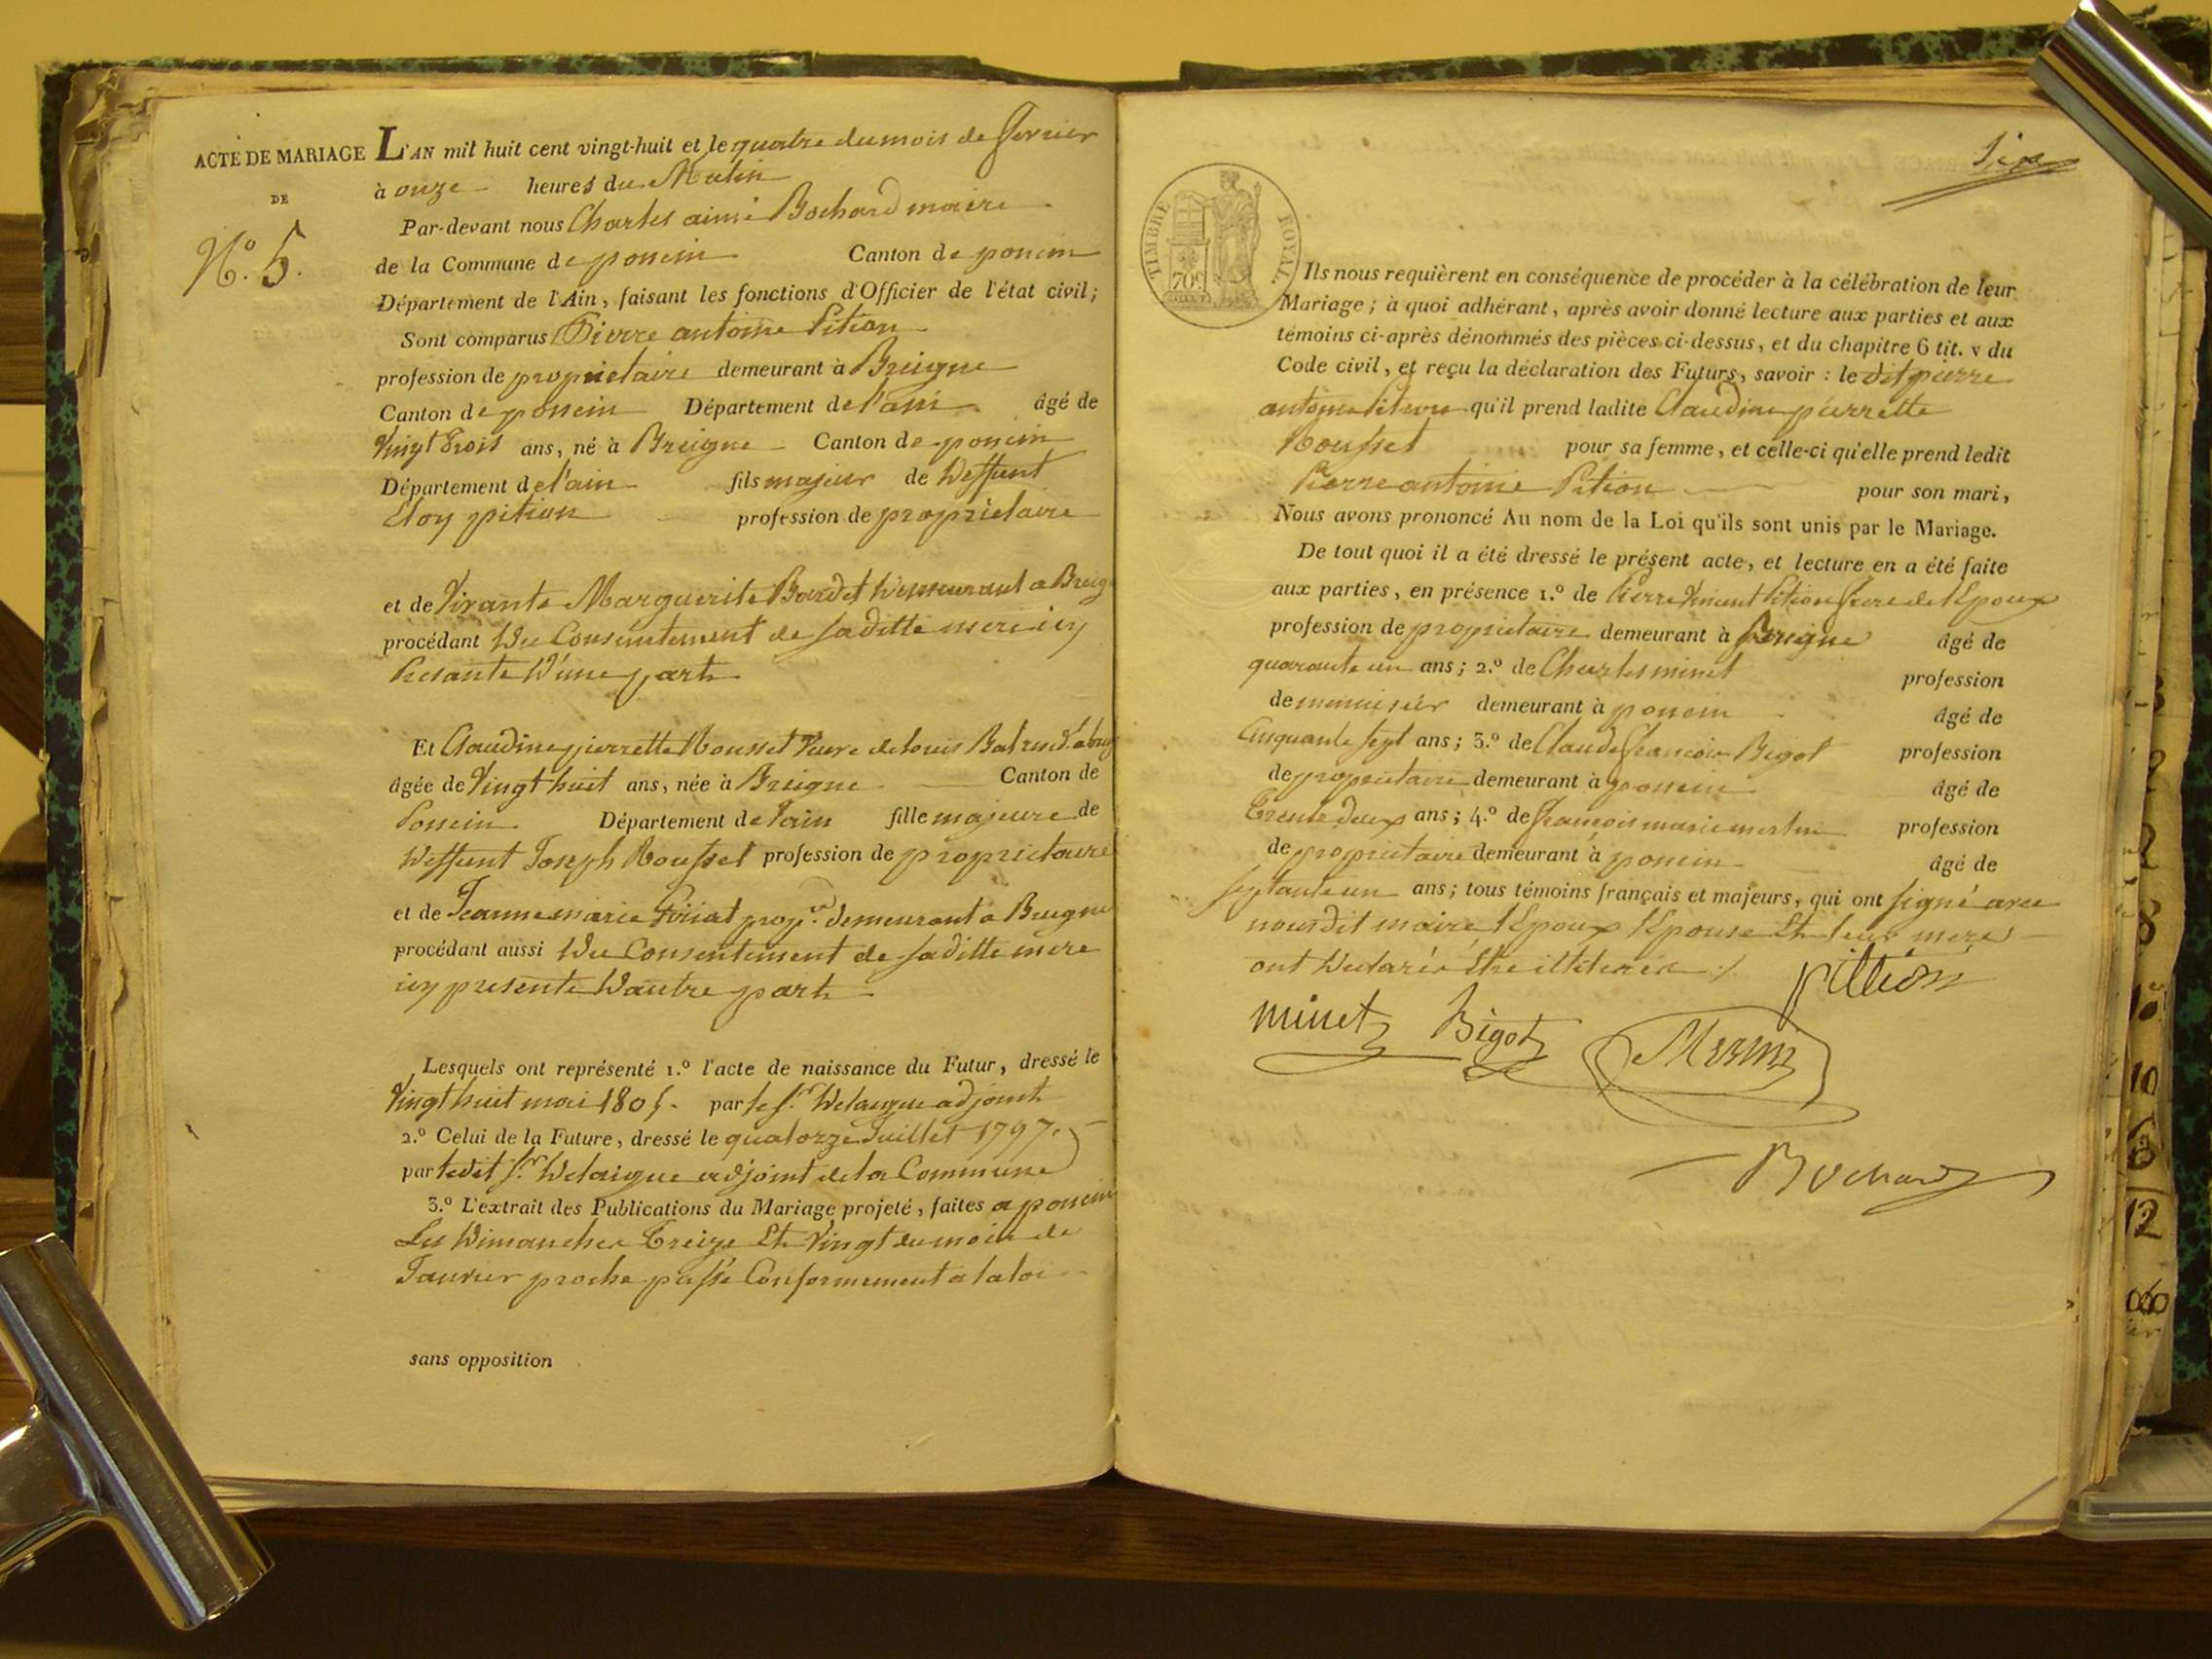 ACTE DE MARIAGE
DE
N.º 5.
L'AN mil huit cent vingt-huit et le quatre du mois de fevrier
à onze heures du Matin
Par-devant nous Charles aimé Bochard maire
de la Commune de poncin Canton de poncin
Département de l'Ain, faisant les fonctions d'Officier de l'état civil;
Sont comparus Pierre antoine Pition
profession de propriétaire demeurant à Breigne
Canton de poncin Département de l'ain âgé de
Vingt trois ans, né à Breigne Canton de poncin
Département de l'ain fils majeur de Deffunt
Eloy pition profession de propriétaire
et de Vivante Marguerite Bardet Demeurant a Breig
procédant Du Consentement de saditte mere icy
Presante D'une part
Et Claudine pierrette Rousset Veuve de louis
âgée de Vingt huit ans, née à Breigne Canton de
Poncin Département de l'ain fille majeure de
Deffunt Joseph Rousset profession de propriétaire
et de Jeanne marie prop.re demeurant a Breigne
procédant aussi Du Consentement de saditte mere
icy presente D'autre part
Lesquels ont représenté 1.º l'acte de naissance du Futur, dressé le
Vingt huit mai 1805. par le S.r Delaigue adjoint
2.º Celui de la Future, dressé le quatorze Juillet 1797.
par ledit S.r Delaigue adjoint de la Commune
3.º L'extrait des Publications du Mariage projeté, faites a poncin
Les Dimanches Treize Et Vingt du mois de
Janvier proche passé Conformement a la loi
sans opposition
Six
TIMBRE ROYAL
70c
Ils nous requièrent en conséquence de procéder à la célébration de leur
Mariage; à quoi adhérant, après avoir donné lecture aux parties et aux
témoins ci-après dénommés des pièces ci-dessus, et du chapitre 6 tit. v du
Code civil, et reçu la déclaration des Futurs, savoir : le dit pierre
antoine Pition qu'il prend ladite Claudine pierrette
Rousset pour sa femme, et celle-ci qu'elle prend ledit
Pierre antoine Pition pour son mari,
Nous avons prononcé Au nom de la Loi qu'ils sont unis par le Mariage.
De tout quoi il a été dressé le présent acte, et lecture en a été faite
aux parties, en présence 1.º de Pierre Vincent Pition frere de l'Epoux
profession de propriétaire demeurant à Breigne âgé de
quarante un ans; 2.º de Charles minet profession
de menuisier demeurant à poncin âgé de
Cinquante sept ans; 3.º de Claude françois Bigot profession
de propriétaire demeurant à poncin âgé de
Trente deux ans; 4.º de françois marie merlin profession
de propriétaire demeurant à poncin âgé de
septante un ans; tous témoins français et majeurs, qui ont signé avec
nousdit maire l'Epoux l'Epouse Et leur meres
ont Declarés Etre illiterés ./.
pittion
minet Bigot Merlin
Bochard